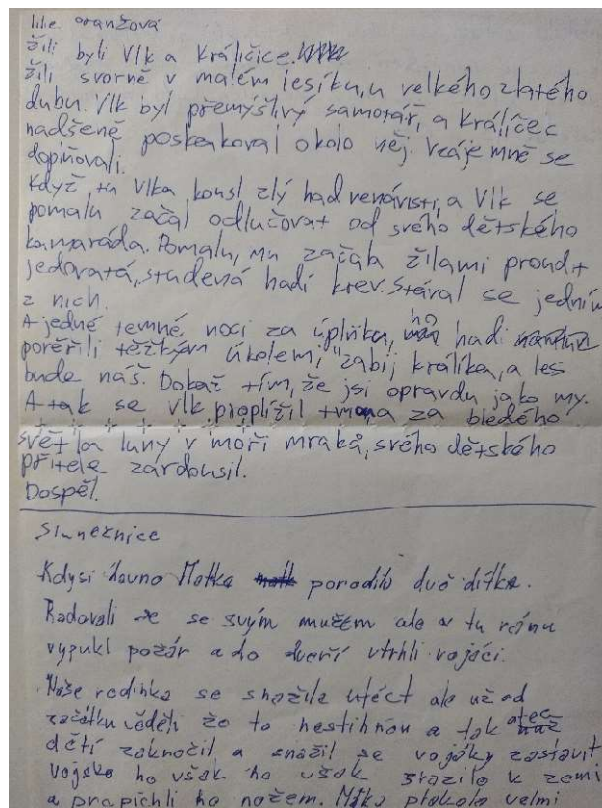 lilie oranžová
žili byli Vlk a Králičice.
žili svorně v malém lesíku, u velkého zlatého
dubu. Vlk byl přemýšlivý samotář, a králíčec
nadšeně poskakoval okolo něj. Vzájemně se
doplňovali.
Když tu Vlka kousl zlý had nenávisti, a Vlk se
pomalu začal odlučovat od svého dětského
kamaráda. Pomalu, mu začala žilami proudit
jedovatá, studená hadí krev. Stával se jedním
z nich.
A jedné temné noci za úplňku, ho hadi
pověřili těžkým úkolem; "zabij králíka, a les
bude náš. Dokaž tím, že jsi opravdu jako my.
A tak se vlk proplížil tmou za bledého
světla luny v moři mraků, svého dětského
přítele zardousil.
Dospěl.
Slunečnice
Kdysi dávno Matka porodila dvě dítka.
Radovali se se svým mužem ale v tu ránu
vypukl požár a do dveří vtrhli vojáci.
Naše rodinka se snažila utéct ale už od
začátku věděli že to nestihnou a tak otec
dětí zakročil a snažil se vojáky zastavit
Vojsko ho však ho však srazilo k zemi
a propíchli ho nožem. Matka plakala velmi